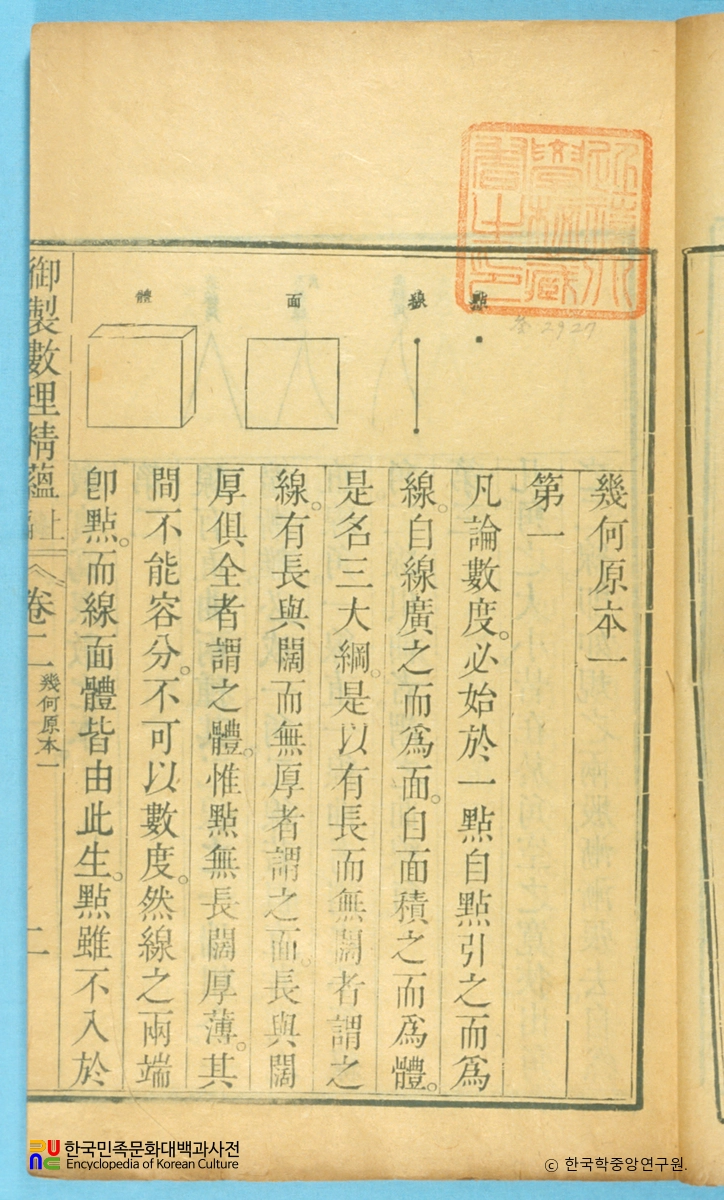 點
線
面
體
幾何原本一
第一
凡論數度。必始於一點自點引之而爲
線。自線廣之而爲面。自面積之而爲體。
是名三大綱。是以有長而無闊者謂之
線。有長與闊而無厚者謂之面。長與闊
厚俱全者謂之體。惟點無長闊厚薄。其
間不能容分。不可以數度。然線之兩端
卽點。而線面體皆由此生。點雖不入於
御製數理精蘊
上
卷二
幾何原本一
二
2927
한국민족문화대백과사전
Encyclopedia of Korean Culture
ⓒ 한국학중앙연구원.